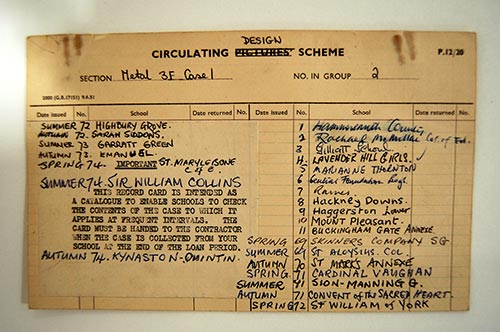 DESIGN
CIRCULATING PICTURES SCHEME P.12/20
SECTION Metal 3F Case 1 NO. IN GROUP 2
2000 (G.B.17151) 9.6.51
No. School Date returned No. School Date returned No.
SUMMER 72 HIGHBURY GROVE.
AUTUMN 72. SARAH SIDDONS.
SUMMER 73 GARRATT GREEN
AUTUMN 73. EMANUEL
SPRING 74. IMPORTANT ST. MARYLEBONE
C of E.
SUMMER 74. SIR WILLIAM COLLINS
THIS RECORD CARD IS INTENDED AS
A CATALOGUE TO ENABLE SCHOOLS TO CHECK
THE CONTENTS OF THE CASE TO WHICH IT
APPLIES AT FREQUENT INTERVALS. THE
CARD MUST BE HANDED TO THE CONTRACTOR
WHEN THE CASE IS COLLECTED FROM YOUR
SCHOOL AT THE END OF THE LOAN PERIOD.
AUTUMN 74. KYNASTON-OMINTIN.
1 Hammersmith County
2 Rachael McMillan Col. of Ed.
3 Elliott School
4 LAVENDER HILL GIRLS.
5 MARIANNE THORNTON
6 Central Foundation Boys
7 Raines
8 Hackney Downs.
9 Haggerston Lower
10 MOUNT PLEASANT.
11 BUCKINGHAM GATE ANNEXE
SPRING 69 SKINNERS COMPANY SG
SUMMER 69 ST ALOYSIUS. COL.
AUTUMN 70 ST MARKS ANNEXE
SPRING. 71 CARDINAL VAUGHAN
SUMMER 71 SION-MANNING G.
AUTUMN 71 CONVENT OF THE SACRED HEART.
SPRING 72 ST WILLIAM OF YORK